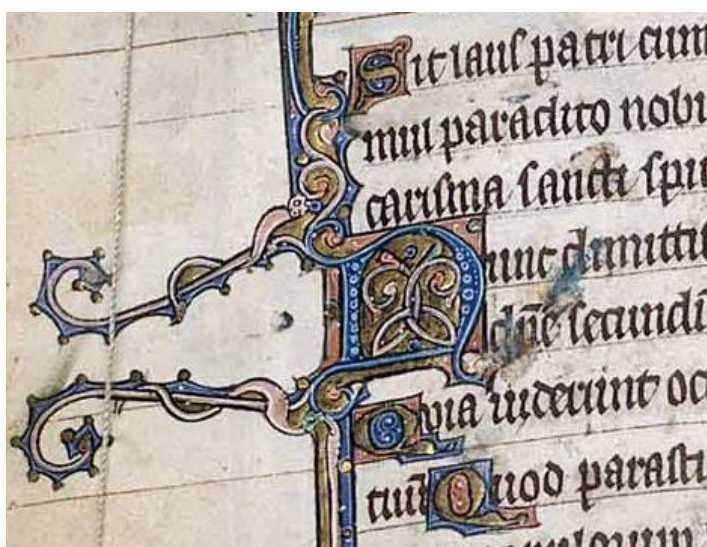 Sit laus patri cum
mul paraclito nobi
carisma sancti spi
Nunc dimittis
dn̄e secundū
Quia uiderunt oc
tuū Quod parasti